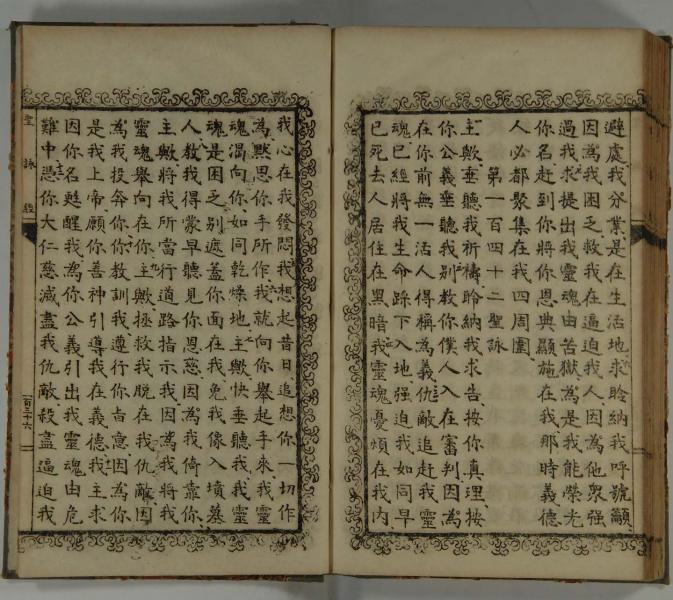 避處我分業是在生活地求聆納我呼號籲
因為我困乏救我在逼迫我人因為他眾強
過我求提出我靈魂由苦獄為是我能榮光
你名赶到你將你恩典顯施在我那時義德
人必都聚集在我四周圍
第一百四十二聖詠
主歟垂聽我祈禱聆納我求告按你真理按
你公義垂聽我別教你僕人入在審判因為
在你前無一活人得稱為義仇敵追赶我靈
魂已經將我生命跺下入地強迫我如同早
已死去人居住在黑暗我靈魂憂煩在我內
我心在我發悶我想起昔日追想你一切作
為黙思你手所作我就向你舉起手來我靈
魂渴向你如同乾燥地主歟快垂聽我我靈
魂是困乏別遮蓋你面在我免我像入墳墓
人教我得蒙早聽見你恩慈因為我倚靠你
主歟將我所當行道路指示我因為我將我
靈魂舉向在你主歟拯救我脫在我仇敵因
為我投奔你你教訓我遵行你旨意因為你
是我上帝願你善神引導我在義德我主求
因你名甦醒我為你公義引出我靈魂由危
難中憑你大仁慈滅盡我仇敵殺盡逼迫我
聖詠經
一百三十六